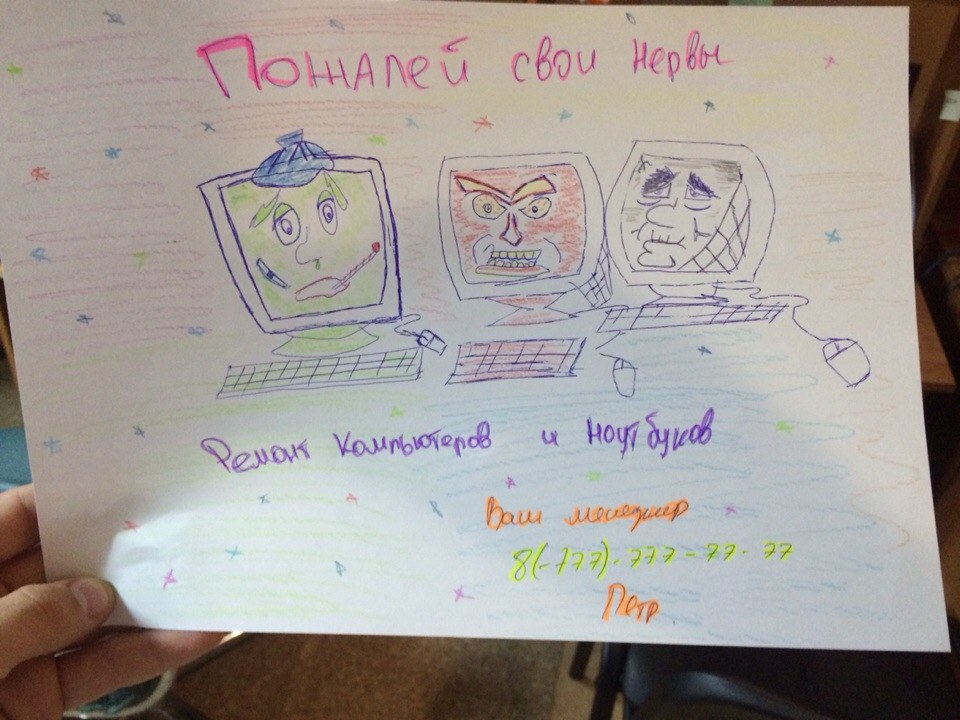 Пожалей свои нервы
Ремонт компьютеров и ноутбуков
Ваш менеджер
8(-777)-777-77-77
Петр